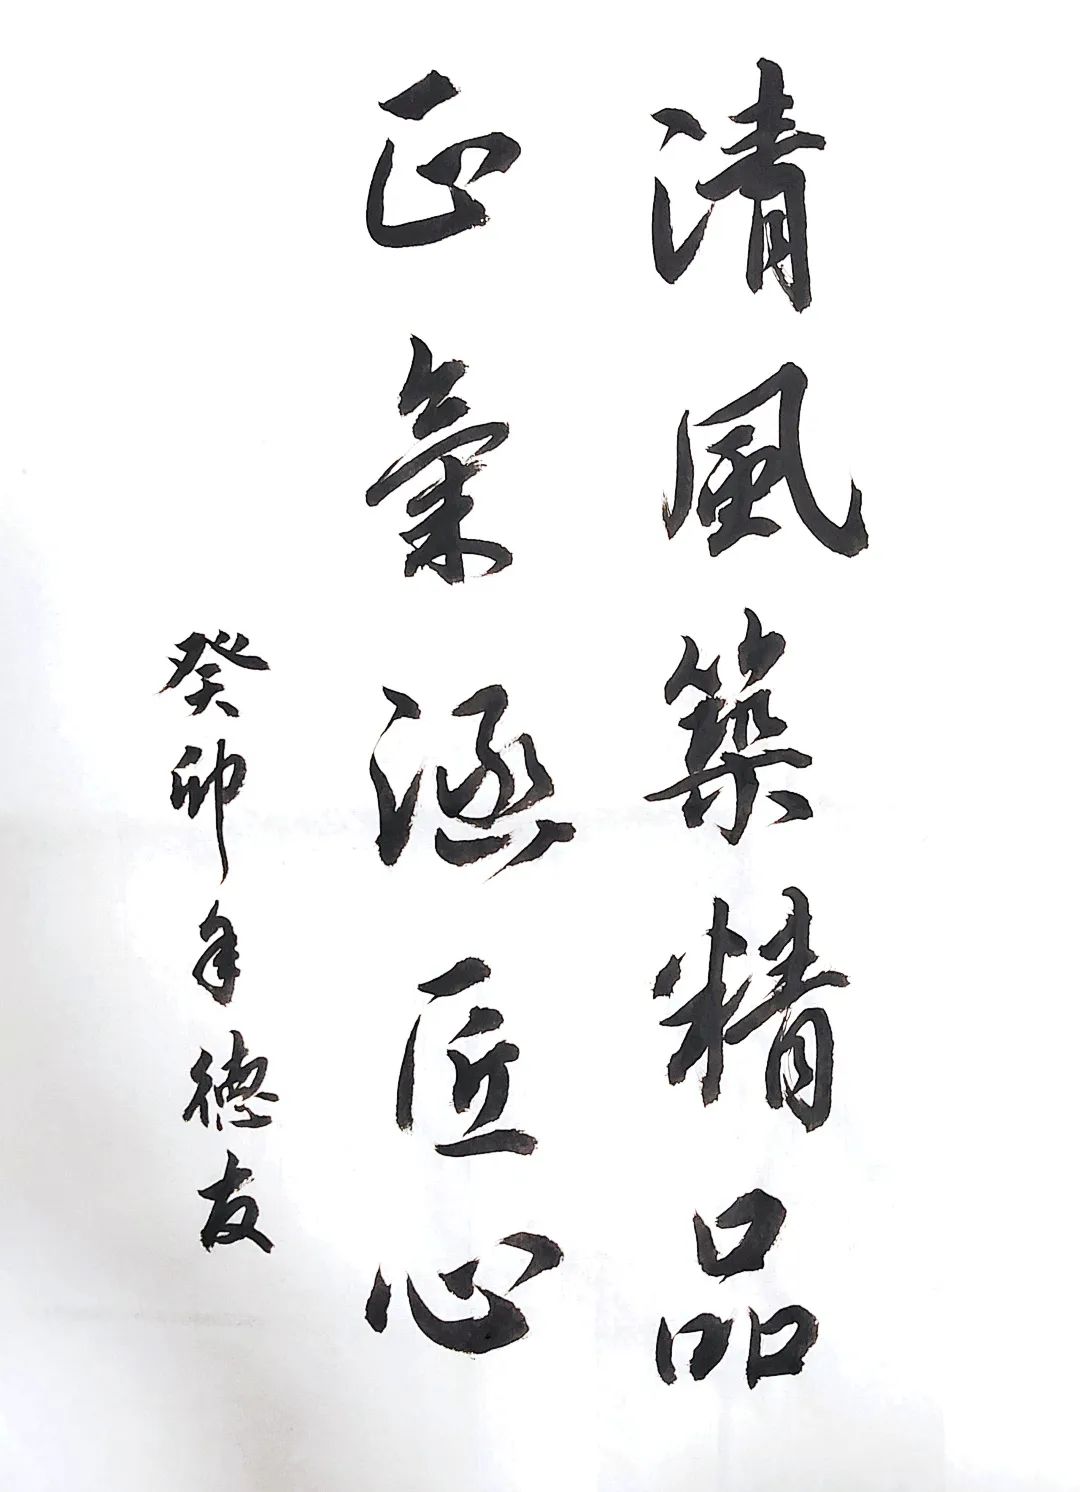 清風築精品
正氣涵匠心
癸卯年德友